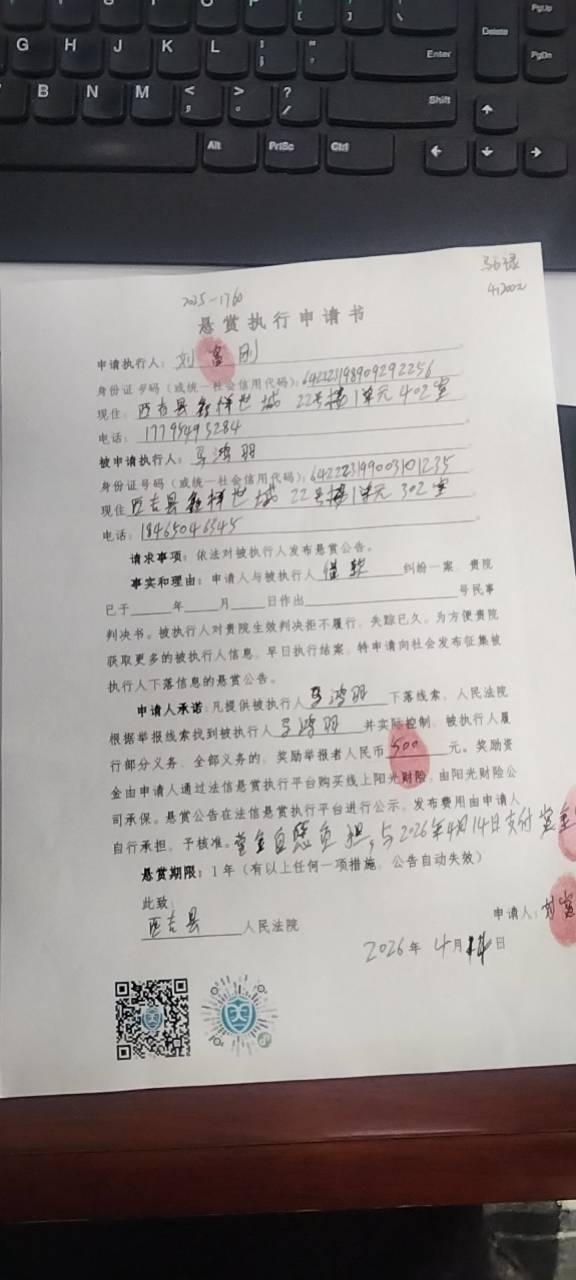 G H J K L Enter Delete PgUp PgDn
B N M < > ? / Shift
Alt PrtSc Ctrl
2025-1760
悬赏执行申请书
申请执行人：刘富刚
身份证号码（或统一社会信用代码）：642223198909292256
现住：西吉县 世城 22号楼1单元402室
电话：17795495284
被申请执行人：马鸿羽
身份证号码（或统一社会信用代码）：642223199003101235
现住西吉县 世城 22号楼1单元302室
电话：18465046545
请求事项：依法对被执行人发布悬赏公告。
事实和理由：申请人与被执行人借款纠纷一案，贵院
已于 年 月 日作出 号民事
判决书。被执行人对贵院生效判决拒不履行，失踪已久。为方便贵院
获取更多的被执行人信息，早日执行结案，特申请向社会发布征集被
执行人下落信息的悬赏公告。
申请人承诺：凡提供被执行人马鸿羽下落线索，人民法院
根据举报线索找到被执行人马鸿羽并实际控制，被执行人履
行部分义务、全部义务的，奖励举报者人民币500元。奖励资
金由申请人通过法信悬赏执行平台购买线上阳光财险，由阳光财险公
司承保。悬赏公告在法信悬赏执行平台进行公示，发布费用由申请人
自行承担，予核准。赏金自愿负担，与2026年4月14日支付赏金
悬赏期限：1年（有以上任何一项措施，公告自动失效）
此致
西吉县人民法院
申请人：刘富
2026年4月14日